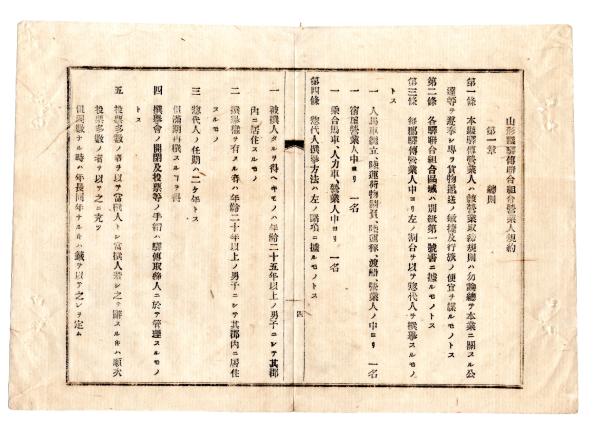 山形縣驛傳聯合組合營業人規約
第一章　總則
第一條　本縣驛傳營業人ハ該營業取締規則ハ勿論總テ本業ニ關スル公
達等ヲ遵奉シ專ヲ貨物遞送ノ敏捷及行旅ノ便宜ヲ謀ルモノトス
第二條　各驛聯合組合區域ハ別紙第一號書ニ據ルモノトス
第三條　每驛驛傳營業人中ヨリ左ノ割合ヲ以テ惣代人ヲ撰擧スルモノ
トス
一　人馬車繼立、陸運荷物、陸運稼、渡船營業人ノ中ヨリ　一名
一　宿屋營業人中ヨリ　一名
一　乘合馬車、人力車、營業人中ヨリ　一名
第四條　惣代人撰擧方法ハ左ノ諸項ニ據ルモノトス
一　被撰人タルヲ得ヘキモノハ年齡二十五年以上ノ男子ニシテ其郡
內ニ居住スルモノ
二　撰擧權ヲ有スル者ハ年齡二十年以上ノ男子ニシテ其郡內ニ居住
スルモノ
三　惣代人ノ任期ハ二ケ年トス
但滿期再撰スルヿヲ得
四　撰擧會ノ開閉及投票等ノ手續ハ驛傳取締人ニ於テ管理スルモノ
トス
五　投票多數ノ者ヲ以テ當撰人トシ當撰人若シ之ヲ辭スルキハ順次
投票多數ノ者ヲ以テ之ニ充ツ
但同數ナル時ハ年長同年ナルキハ鬮ヲ以テ之レヲ定ム
四